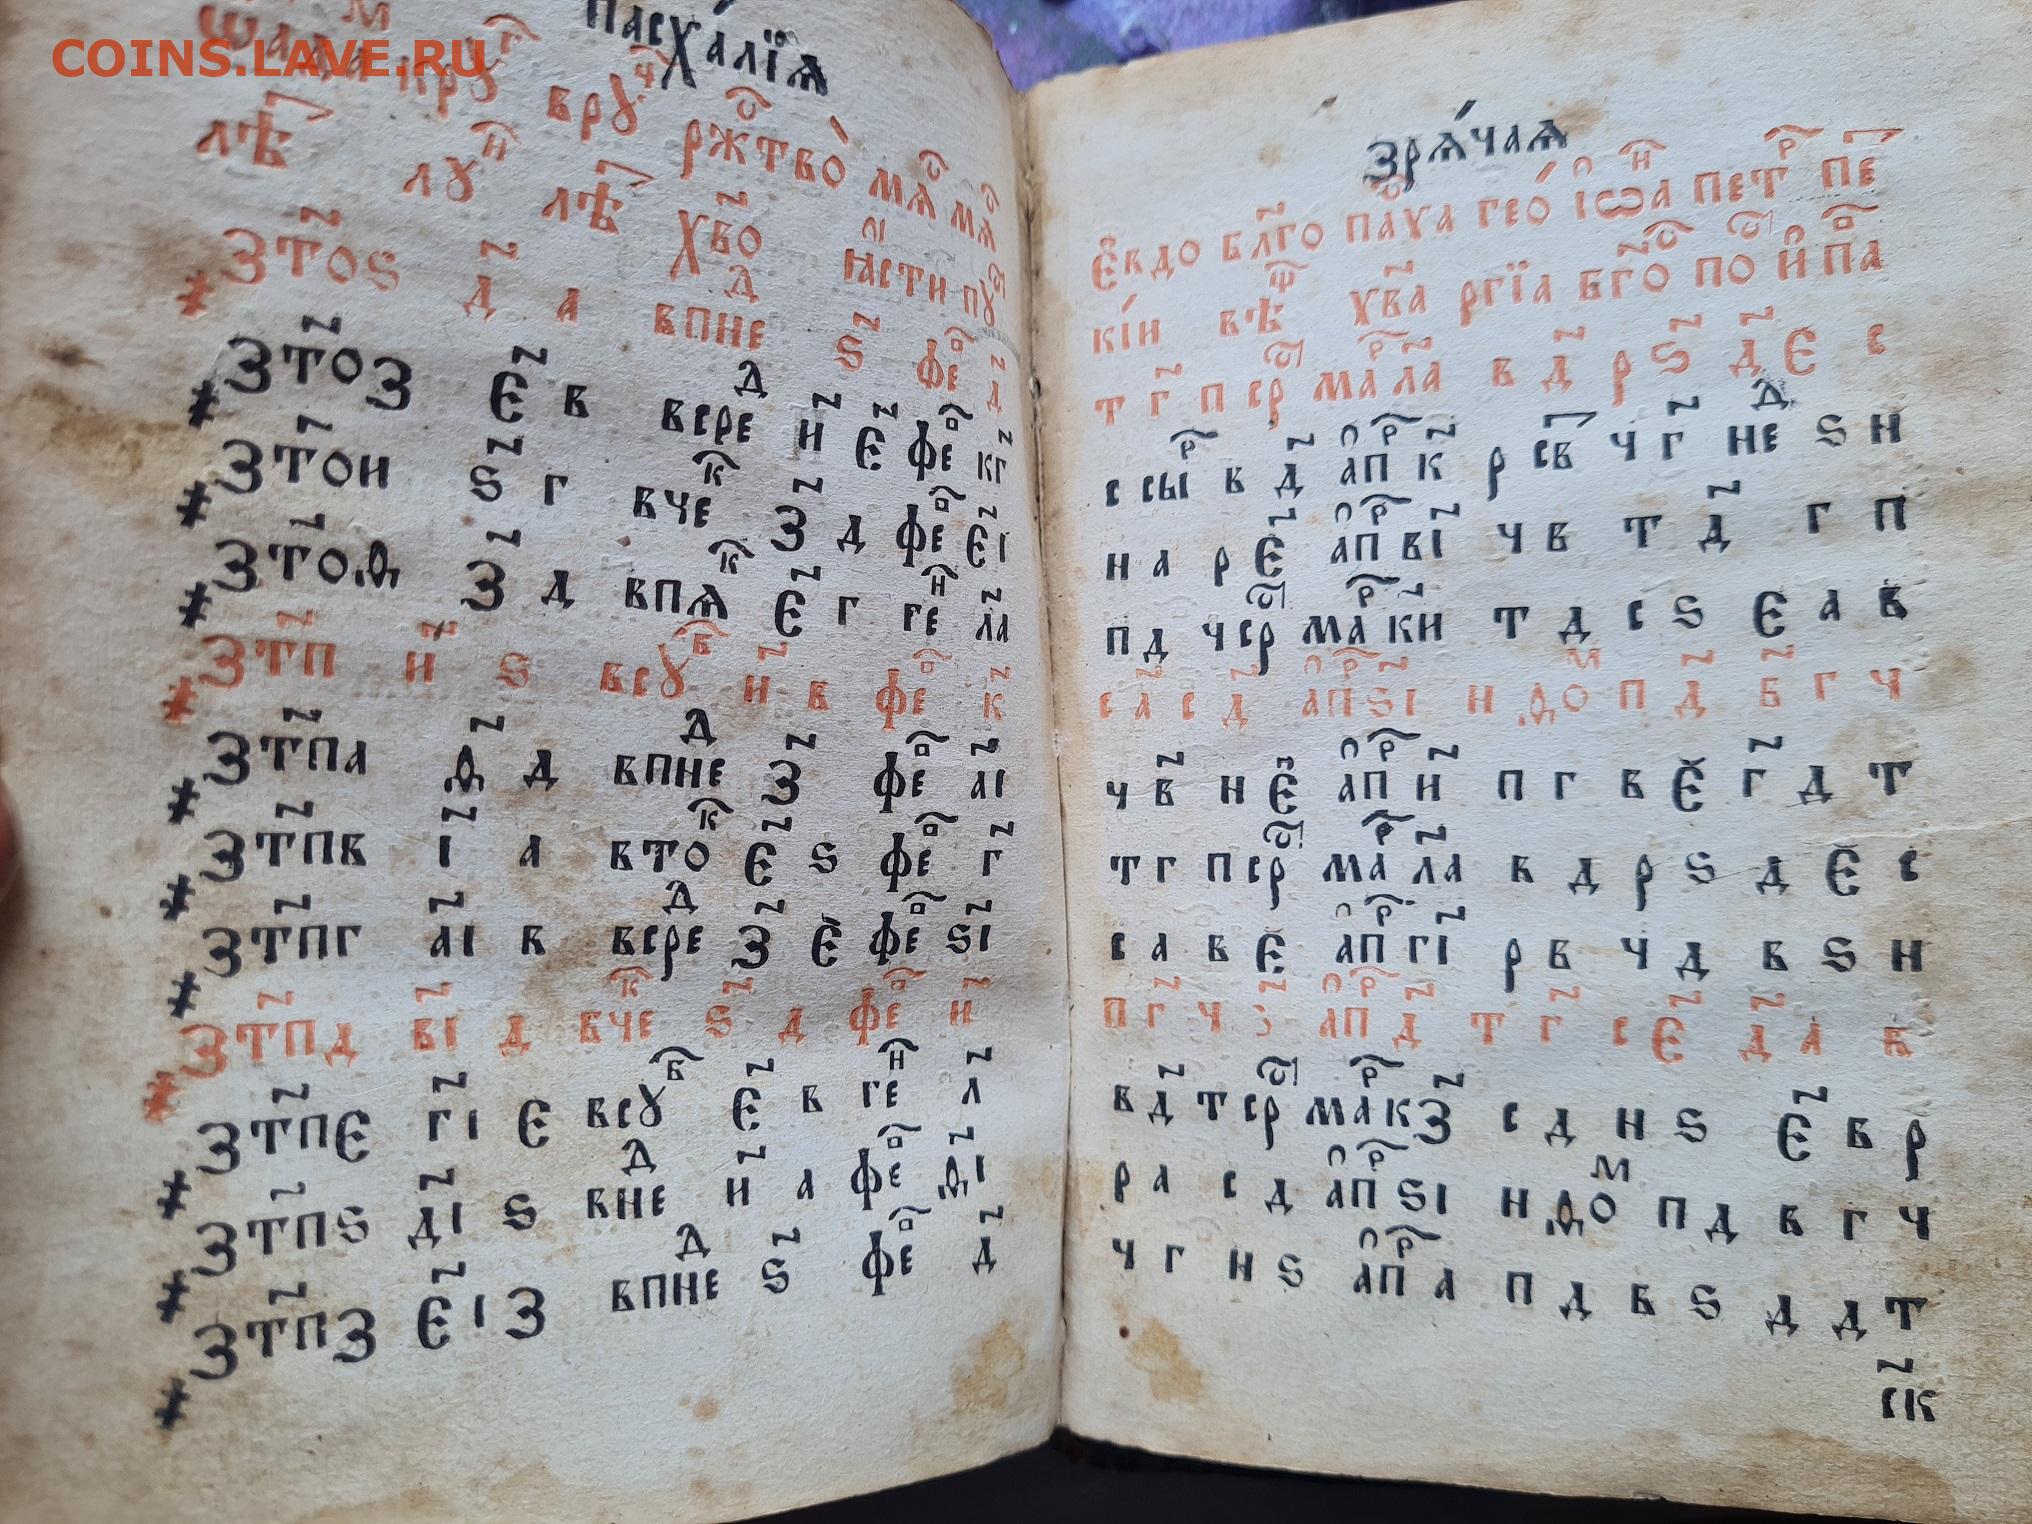 COINS.LAVE.RU
пасха́лїѧ
лѣ лꙋⷩ҇ лѣ хв҃о ꙗсти пꙋ
҂зт҃оѕ д҃ а впнеⷣ ѕ҃ феⷡ҇ д҃
҂зт҃оз є҃ в всреⷣ и҃ є҃ феⷡ҇ к҃г
҂зт҃ои ѕ҃ г вчеⷦ҇ з҃ д феⷡ҇ є҃і
҂зт҃оѳ з҃ д впѧⷦ҇ є҃ г геⷩ҇ л҃а
҂зт҃п и҃ ѕ всꙋⷠ҇ и҃ в феⷡ҇ к҃
҂зт҃па ѳ҃ д впнеⷣ з҃ феⷡ҇ а҃і
҂зт҃пв і҃ а втоⷦ҇ є҃ ѕ феⷡ҇ г҃
҂зт҃пг а҃і в всреⷣ з҃ є феⷡ҇ ѕ҃і
҂зт҃пд в҃і д вчеⷦ҇ ѕ҃ д феⷡ҇ и҃
҂зт҃пє г҃і є всꙋⷠ҇ є҃ в геⷩ҇ л҃
҂зт҃пѕ д҃і ѕ внеⷣ и҃ а феⷡ҇ в҃і
҂зт҃пз є҃і з впнеⷣ ѕ҃ феⷡ҇ д҃
зрѧ́чаѧ
є҆вдо бл҃го паѵа гео́ іѡⷩ҇а петⷬ҇ пе
кі́и вѣ хв҃а ргїа бг҃о поⷭ҇ и па
т г҃ п срⷣ маⷬ҇ л҃а в д҃ р ѕ҃ д҃ є с
с сы в д҃ апⷬ҇ к҃ р св ч г҃ неⷣ ѕ н
н а р є҃ апⷬ҇ в҃і ч в т д҃ г п
п д ч срⷣ маⷬ҇ к҃и т д с ѕ є а в
с а҃ с д҃ апⷬ҇ ѕ҃і н ѳоⷨ п д҃ в҃ г ч
ч в҃ н є҃ апⷬ҇ и҃ п г в є г҃ д т
т г п срⷣ маⷬ҇ л҃а в д р ѕ д є с
с а в є апⷬ҇ г҃і р в ч д в ѕ н
п г҃ ч апⷬ҇ д҃ т г҃ с є҃ д҃ а в
в д҃ т срⷣ маⷬ҇ к҃з с д н ѕ є҃ в р
р а с д апⷬ҇ ѕі н ѳоⷨ п д в г ч
ч г н ѕ апⷬ҇ а п д в ѕ д д т
с҃к